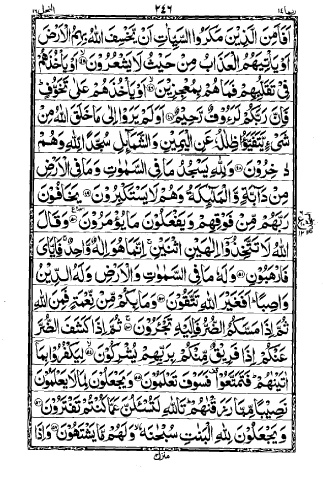 ربما ١٤ ٢٤٦ النحل ١٦
اَفَاَمِنَ الَّذِيْنَ مَكَرُوا السَّيِّاٰتِ اَنْ يَّخْسِفَ اللّٰهُ بِهِمُ الْاَرْضَ
اَوْ يَاْتِيَهُمُ الْعَذَابُ مِنْ حَيْثُ لَا يَشْعُرُوْنَ ۙ‏ اَوْ يَاْخُذَهُمْ
فِيْ تَقَلُّبِهِمْ فَمَا هُمْ بِمُعْجِزِيْنَ ۙ‏ اَوْ يَاْخُذَهُمْ عَلٰى تَخَوُّفٍ
فَاِنَّ رَبَّكُمْ لَرَءُوْفٌ رَّحِيْمٌ اَوَلَمْ يَرَوْا اِلٰى مَا خَلَقَ اللّٰهُ مِنْ
شَيْءٍ يَّتَفَيَّؤُا ظِلٰلُهٗ عَنِ الْيَمِيْنِ وَالشَّمَآئِلِ سُجَّدًا لِّلّٰهِ وَهُمْ
دٰخِرُوْنَ وَلِلّٰهِ يَسْجُدُ مَا فِي السَّمٰوٰتِ وَمَا فِي الْاَرْضِ
مِنْ دَآبَّةٍ وَّالْمَلٰٓئِكَةُ وَهُمْ لَا يَسْتَكْبِرُوْنَ يَخَافُوْنَ
رَبَّهُمْ مِّنْ فَوْقِهِمْ وَيَفْعَلُوْنَ مَا يُؤْمَرُوْنَ وَقَالَ
اللّٰهُ لَا تَتَّخِذُوْٓا اِلٰهَيْنِ اثْنَيْنِ ۚ اِنَّمَا هُوَ اِلٰهٌ وَّاحِدٌ ۚ فَاِيَّايَ
فَارْهَبُوْنِ وَلَهٗ مَا فِي السَّمٰوٰتِ وَالْاَرْضِ وَلَهُ الدِّيْنُ
وَاصِبًا ؕ اَفَغَيْرَ اللّٰهِ تَتَّقُوْنَ وَمَا بِكُمْ مِّنْ نِّعْمَةٍ فَمِنَ اللّٰهِ
ثُمَّ اِذَا مَسَّكُمُ الضُّرُّ فَاِلَيْهِ تَجْـَٔرُوْنَ ۚ‏ ثُمَّ اِذَا كَشَفَ الضُّرَّ
عَنْكُمْ اِذَا فَرِيْقٌ مِّنْكُمْ بِرَبِّهِمْ يُشْرِكُوْنَ ۙ‏ لِيَكْفُرُوْا بِمَآ
اٰتَيْنٰهُمْ ؕ فَتَمَتَّعُوْا فَسَوْفَ تَعْلَمُوْنَ وَيَجْعَلُوْنَ لِمَا لَا يَعْلَمُوْنَ
نَصِيْبًا مِّمَّا رَزَقْنٰهُمْ ؕ تَاللّٰهِ لَتُسْـَٔلُنَّ عَمَّا كُنْتُمْ تَفْتَرُوْنَ
وَيَجْعَلُوْنَ لِلّٰهِ الْبَنٰتِ سُبْحٰنَهٗ ۙ وَلَهُمْ مَّا يَشْتَهُوْنَ وَاِذَا
منزل ٣